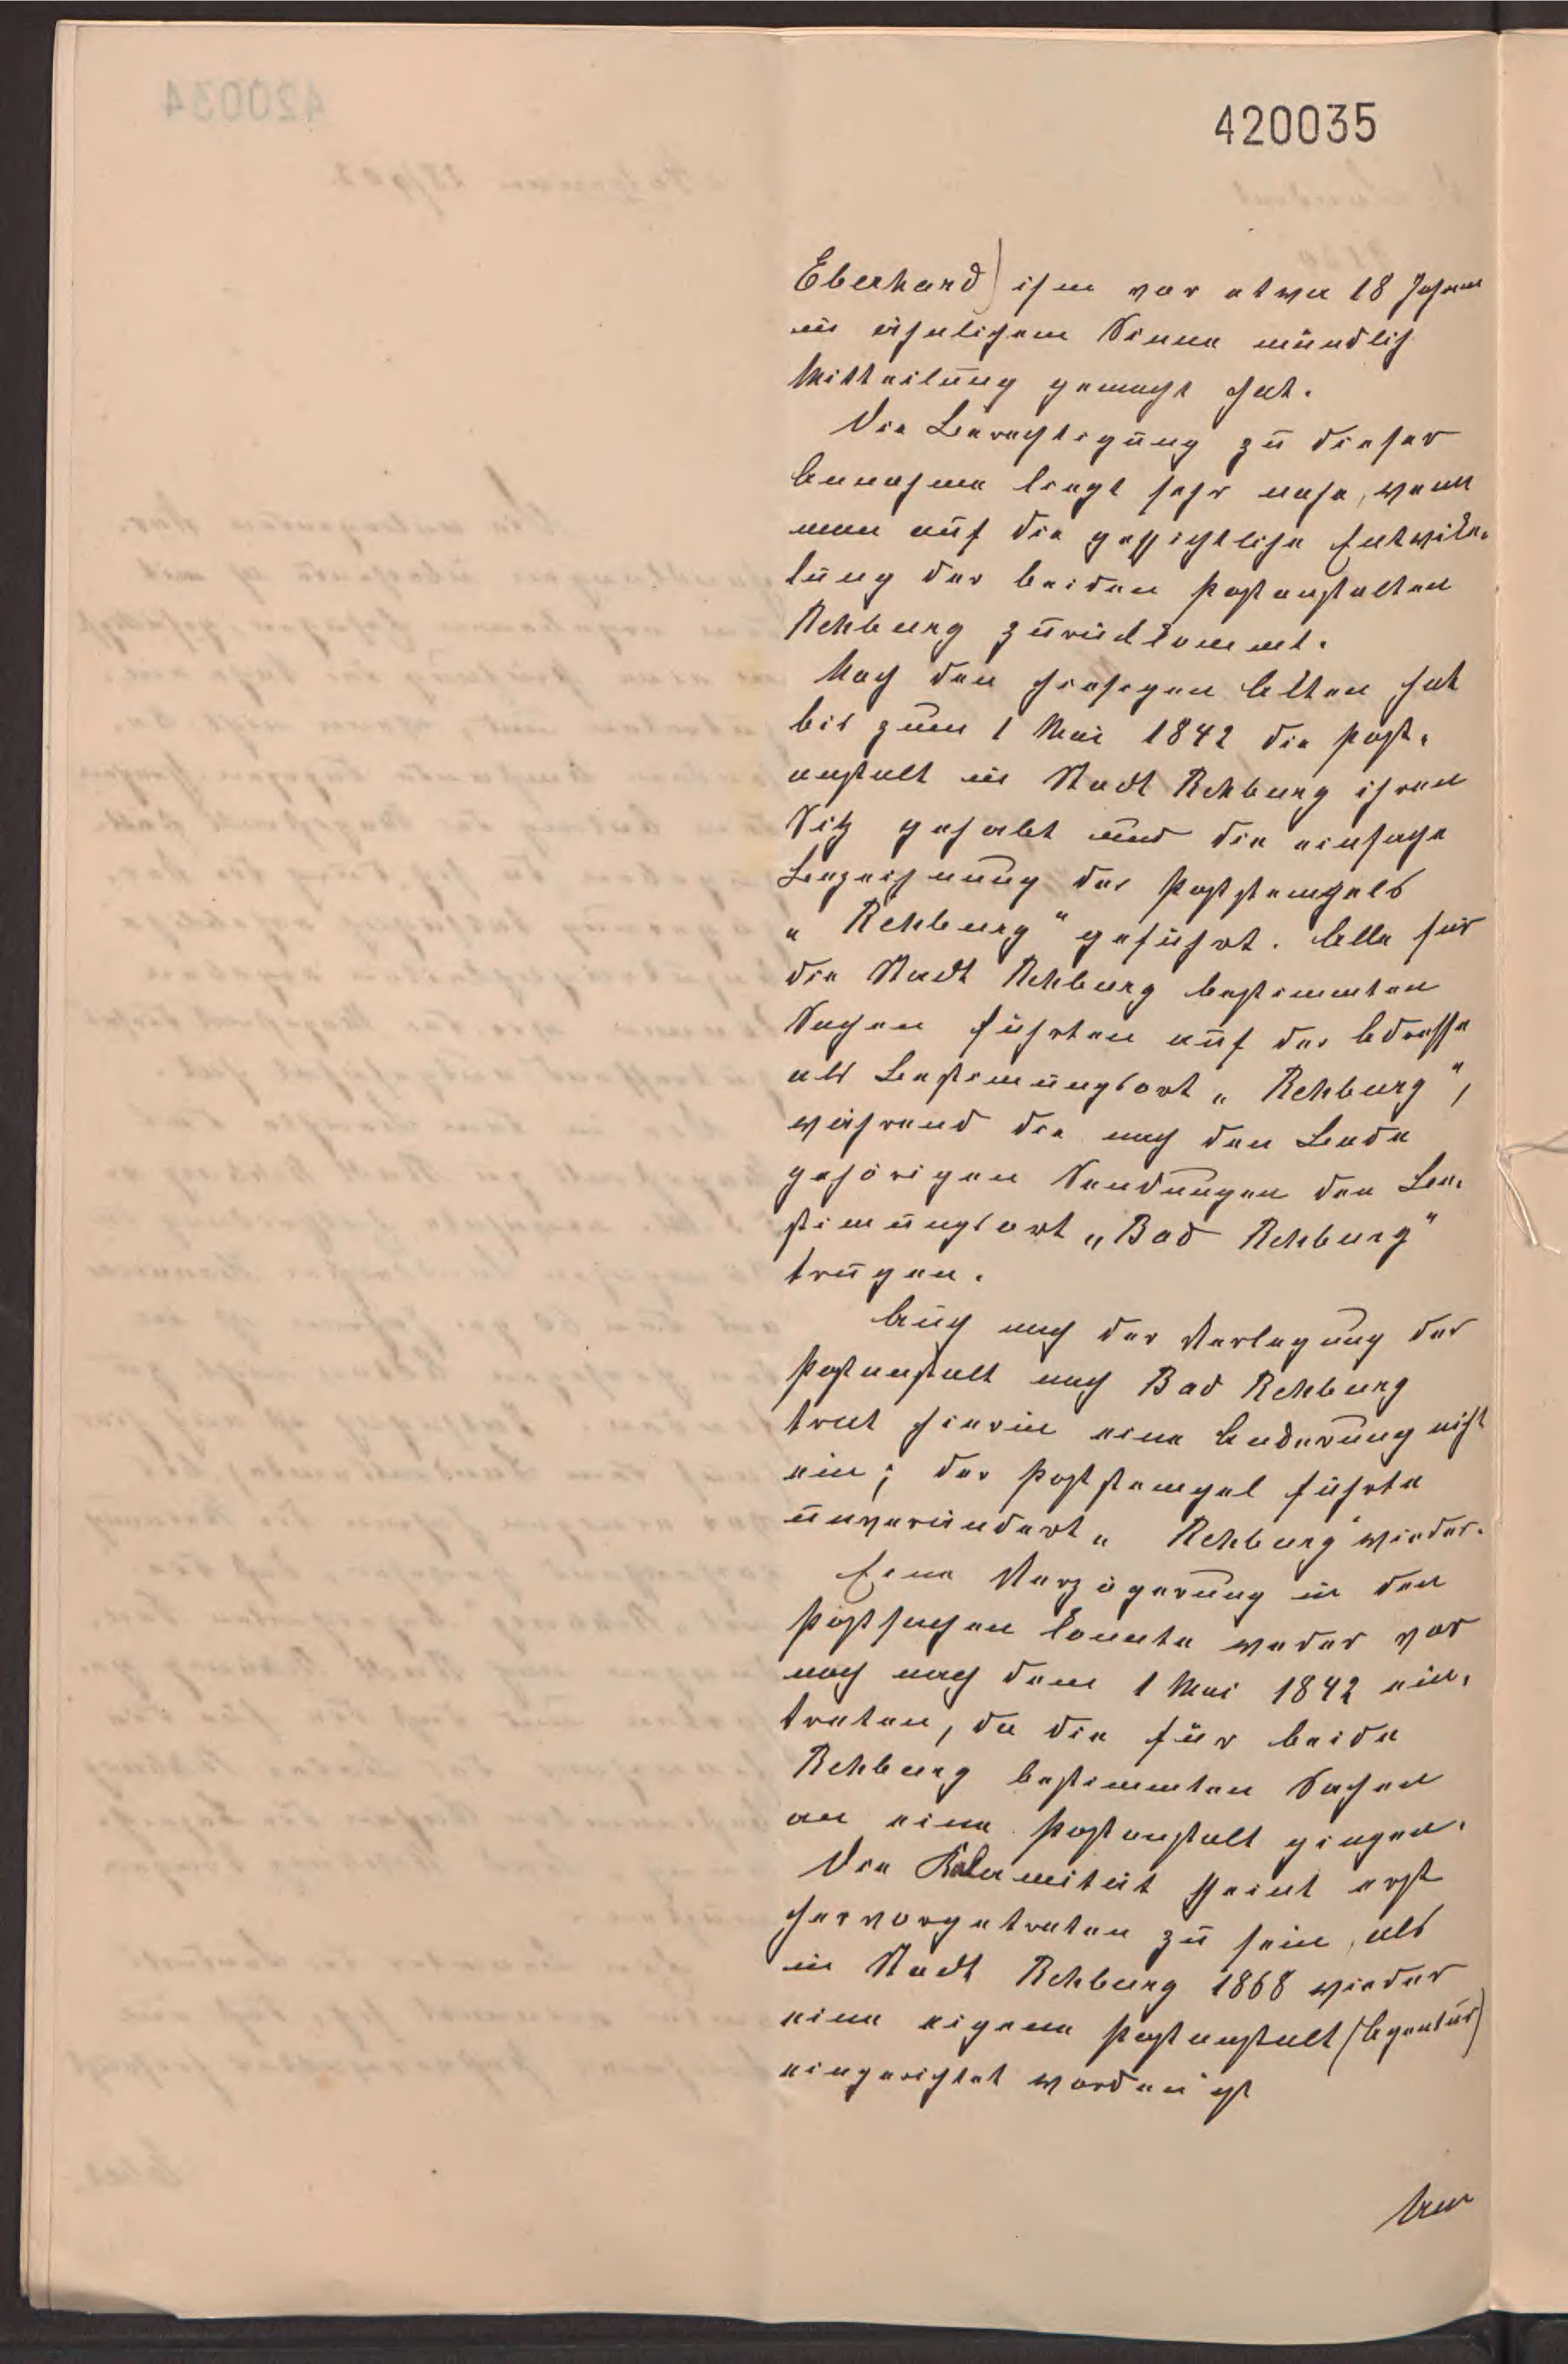 420035
Eberhard) ihm vor etwa 18 Jahren
in ähnlichem Sinne mündlich
Mitteilung gemacht hat.
Die Berechtigung zu dieser
Annahme liegt sehr nahe, wenn
man auf die geschichtliche Entwicke-
lung der beiden Postanstalten
Rehburg zurückkommt.
Nach den hiesigen Akten hat
bis zum 1 Mai 1842 die Post-
anstalt in Stadt Rehburg ihren
Sitz gehabt und die einfache
Bezeichnung des Poststempels
„Rehburg" geführt. Alle für
die Stadt Rehburg bestimmten
Sachen führten auf der Adresse
als Bestimungsort „Rehburg",
während die nach dem Bade
gehörigen Sendungen den Be-
stimungsort „Bad Rehburg"
trugen.
Auch nach der Verlegung der
Postanstalt nach Bad Rehburg
trat hierin eine Änderung nicht
ein; der Poststempel führte
unverändert „Rehburg" wieder.
Eine Verzögerung in den
Postsachen konnte weder vor
noch nach dem 1 Mai 1842 ein-
treten, da die für beide
Rehburg bestimmten Sachen
an eine Postanstalt gingen.
Die Kalamität scheint erst
hervorgetreten zu sein, als
in Stadt Rehburg 1868 wieder
eine eigene Postanstalt (Agentur)
eingerichtet worden ist